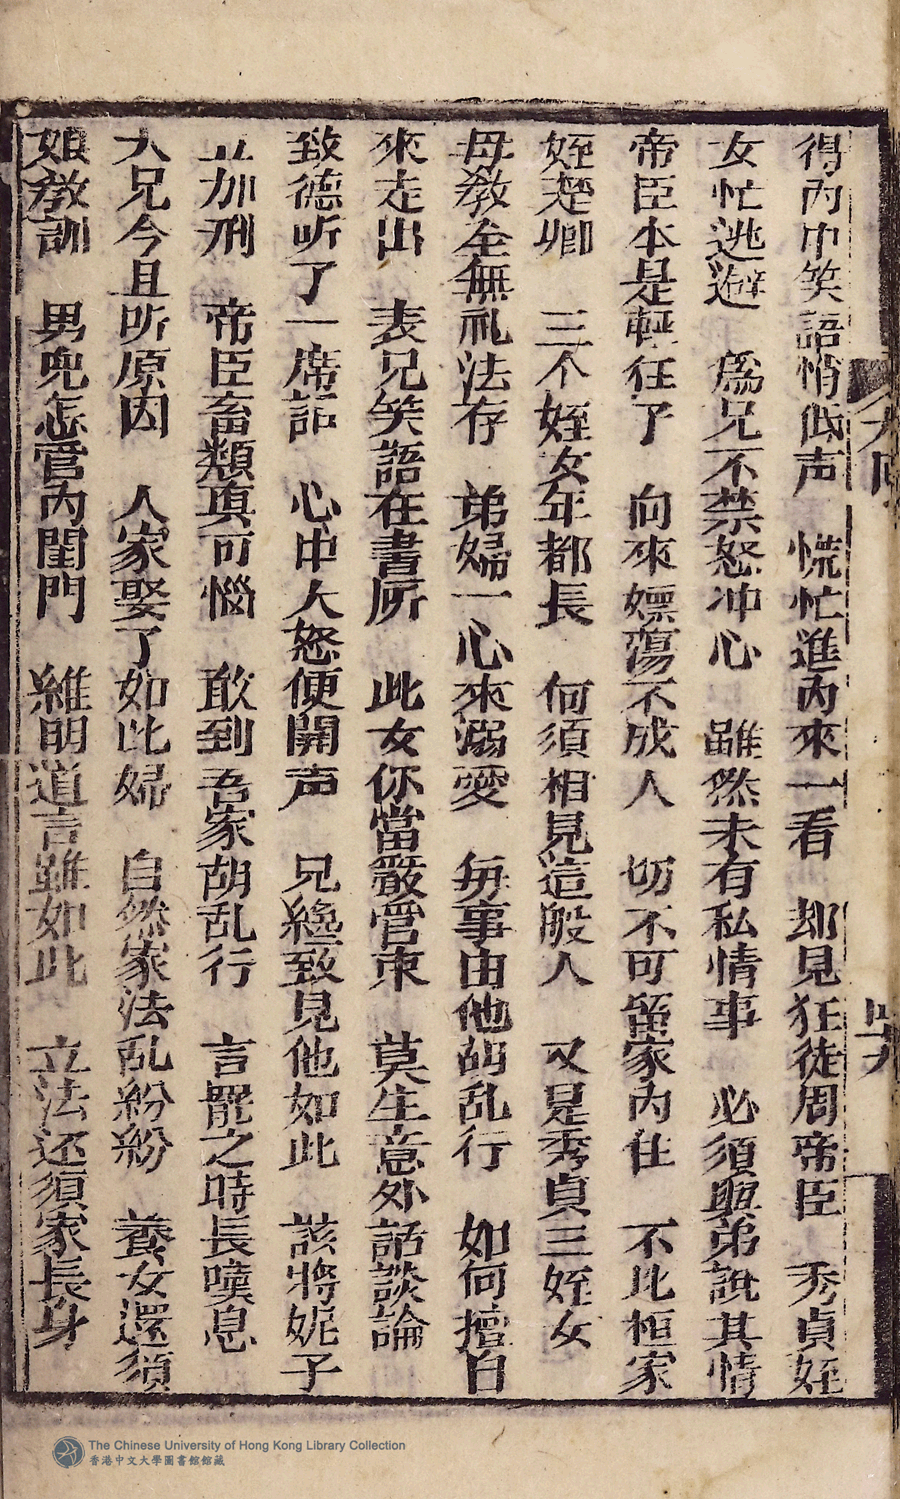 得內中笑語悄低声　慌忙進內來一看　却見狂徒周帝臣　秀貞姪
女忙逃避　為兄不禁怒冲心　雖然未有私情事　必須與弟說其情
帝臣本是輕狂子　向來嫖蕩不成人　切不可留家內住　不比桓家
姪楚卿　三个姪女年都長　何須相見這般人　又是秀貞三姪女
母教全無礼法存　弟婦一心來溺愛　每事由他胡乱行　如何擅自
來走出　表兄笑語在書房　此女你當嚴管束　莫生意外話談論
致德听了一席話　心中大怒便開声　兄纔致見他如此　該將妮子
立加刑　帝臣畜類真可惱　敢到吾家胡乱行　言罷之時長嘆息
大兄今且听原因　人家娶了如此婦　自然家法乱紛紛　養女還須
娘教訓　男兒怎管內閨門　維明道言雖如此　立法还須家長身
The Chinese University of Hong Kong Library Collection
香港中文大學圖書館館藏